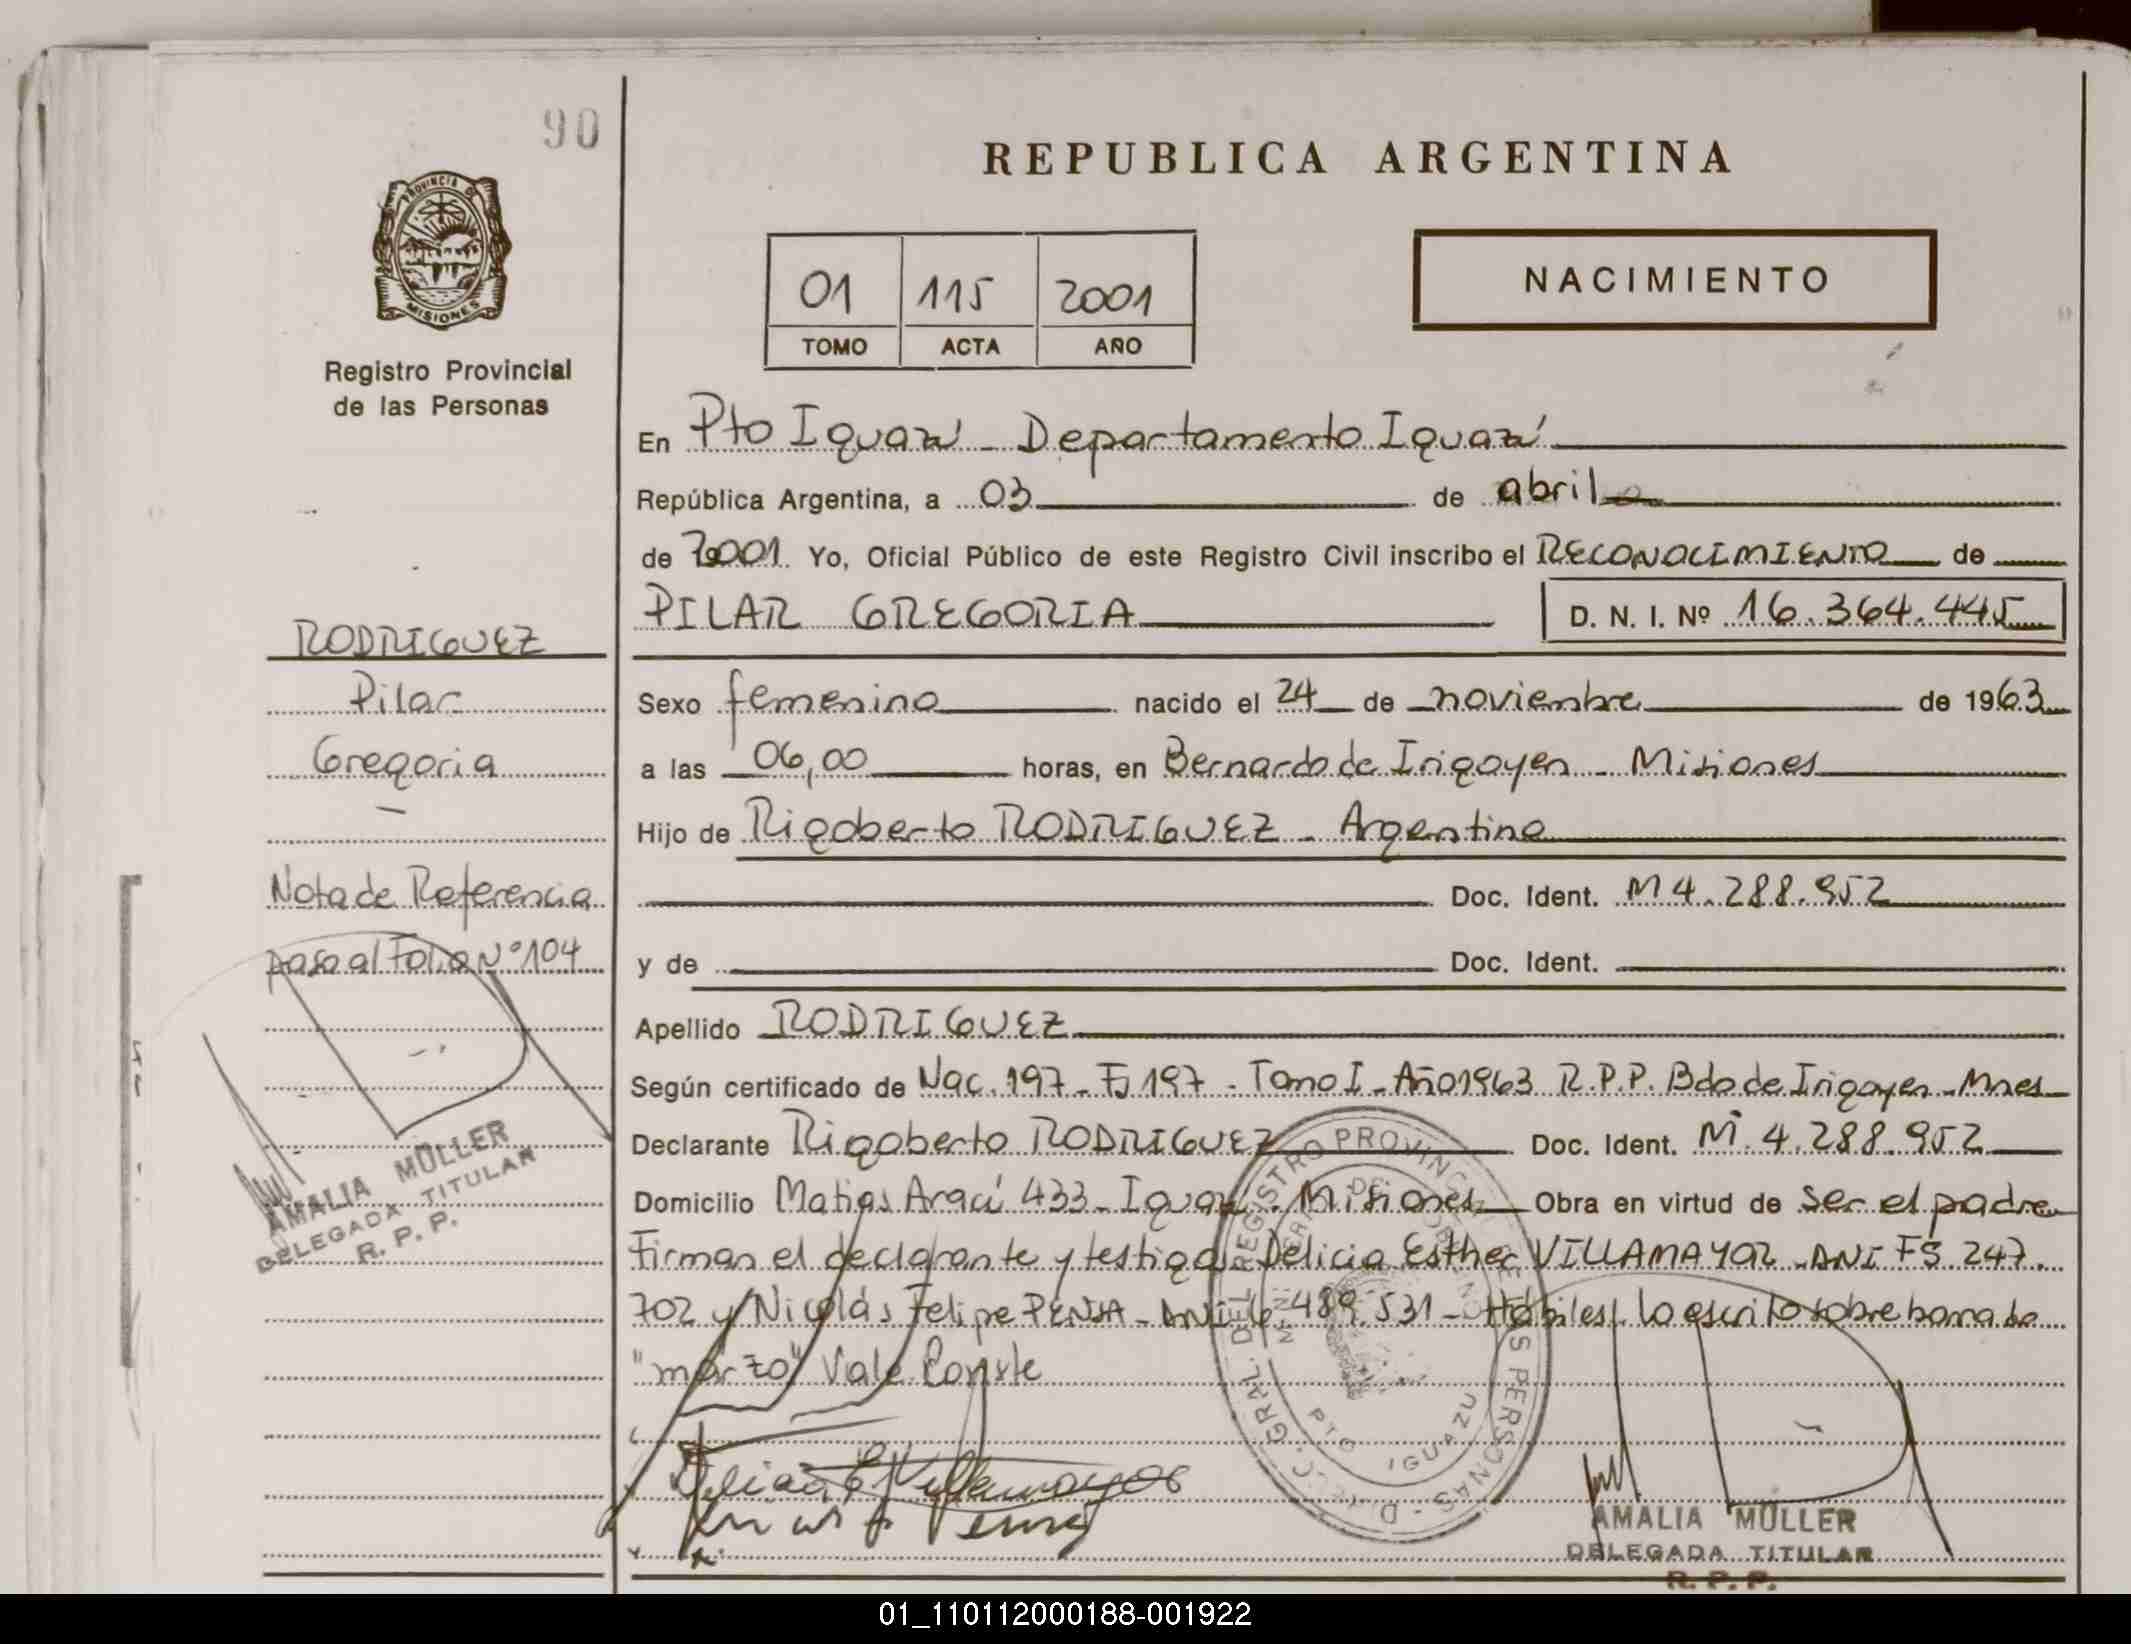 90
REPUBLICA ARGENTINA
PROVINCIA DE
MISIONES
Registro Provincial
de las Personas
01 115 2001
TOMO ACTA AÑO
NACIMIENTO
En Pto Iguazú - Departamento Iguazú
República Argentina, a 03 de abril
de 2001. Yo, Oficial Público de este Registro Civil inscribo el RECONOCIMIENTO de
PILAR GREGORIA D. N. I. Nº 16.364.445
RODRIGUEZ
Pilar
Gregoria
Sexo femenino nacido el 24 de noviembre de 1963
a las 06,00 horas, en Bernardo de Irigoyen - Misiones
Hijo de Rigoberto RODRIGUEZ - Argentino
Doc. Ident. M 4.288.952
y de Doc. Ident.
Nota de Referencia
pasa al Folio Nº 104
Apellido RODRIGUEZ
Según certificado de Nac. 197 - Fº 197 - Tomo I - Año 1963 R.P.P. Bdo de Irigoyen - Mnes
Declarante Rigoberto RODRIGUEZ Doc. Ident. M. 4.288.952
Domicilio Matias Aracú 433 - Iguazú. Misiones Obra en virtud de ser el padre
Firman el declarante y testigos Delicia Esther VILLAMAYOR - DNI F5.247.
702 y Nicolás Felipe PENSA - DNI 489.531 - Hábiles/ Lo escrito sobre borrado
"marzo" Vale Conste
AMALIA MÜLLER
DELEGADA TITULAR
R. P. P.
DIRECC. GRAL. DEL REGISTRO PROVINCIAL DE LAS PERSONAS
PTO IGUAZU
Delicia E Villamayor
AMALIA MÜLLER
DELEGADA TITULAR
R. P. P.
01_110112000188-001922